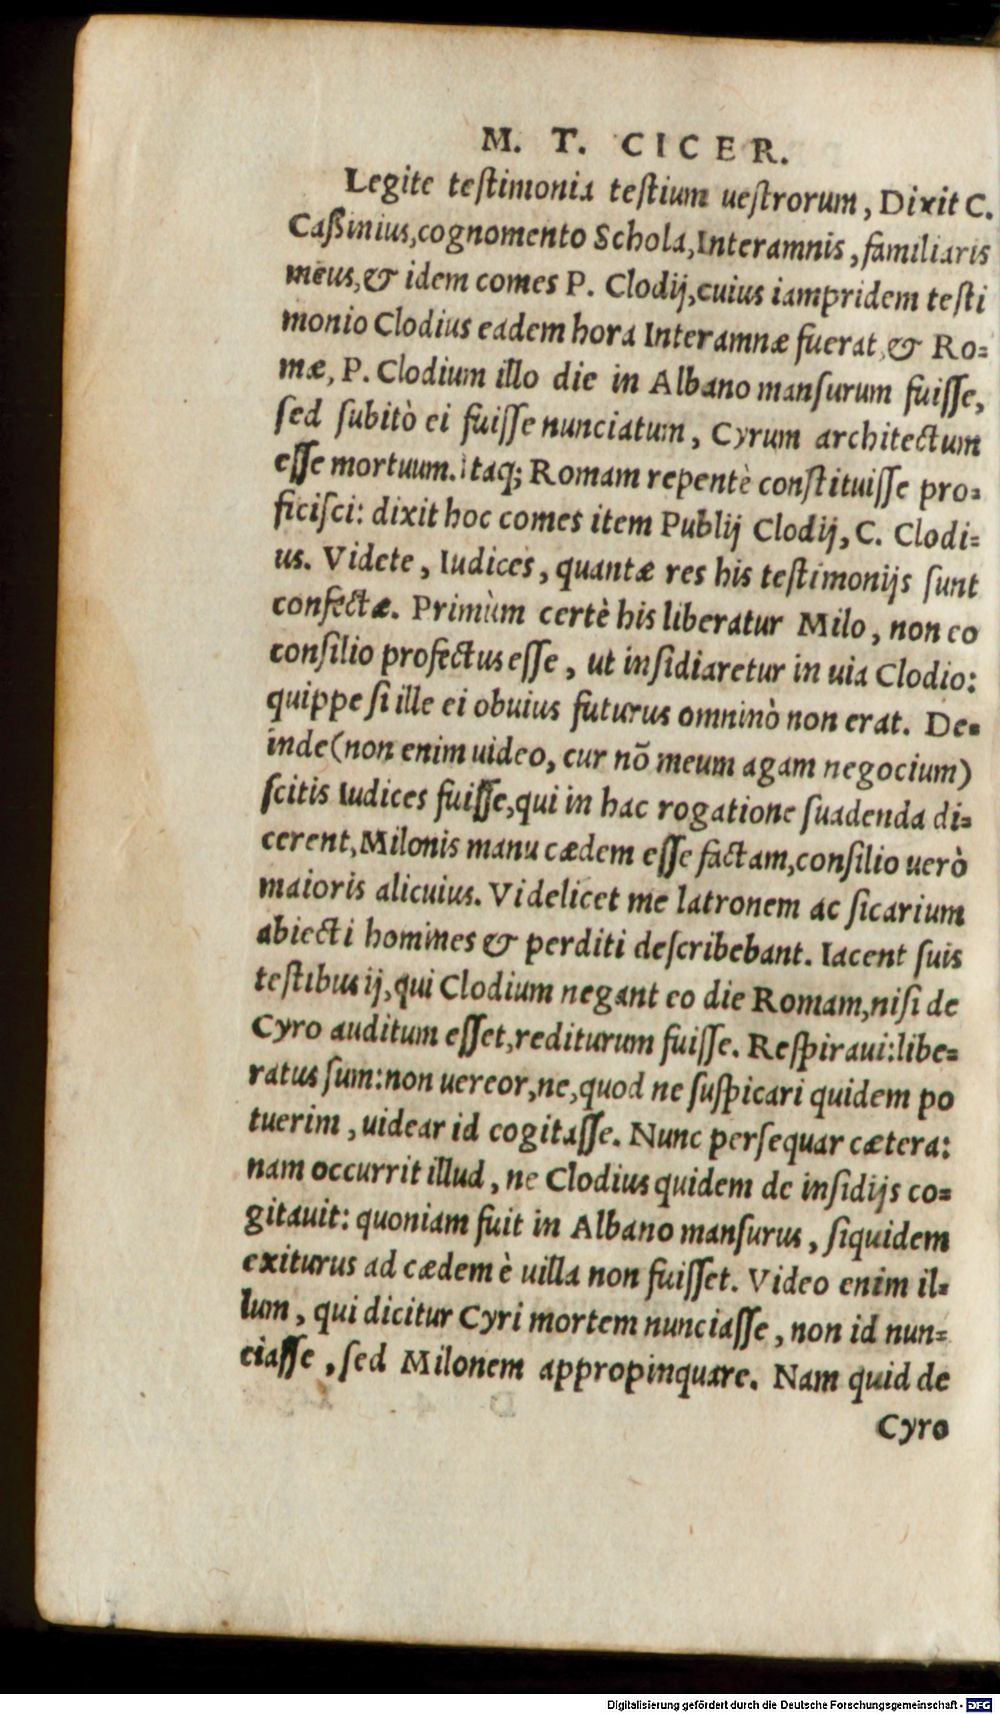 M. T. CICER.
Legite teſtimonia teſtium ueſtrorum, Dixit C.
Caßinius, cognomento Schola, Interamnis, familiaris
meus, & idem comes P. Clodij, cuius iampridem teſti
monio Clodius eadem hora Interamnæ fuerat, & Ro=
mæ, P. Clodium illo die in Albano manſurum fuiſſe,
ſed ſubitò ei fuiſſe nunciatum, Cyrum architectum
eſſe mortuum. Itaq; Romam repentè conſtituiſſe pro=
ficiſci: dixit hoc comes item Publij Clodij, C. Clodi=
us. Videte, Iudices, quantæ res his teſtimonijs ſunt
confectæ. Primùm certè his liberatur Milo, non eo
conſilio profectus eſſe, ut inſidiaretur in uia Clodio:
quippe ſi ille ei obuius futurus omninò non erat. De=
inde (non enim uideo, cur nō meum agam negocium)
ſcitis Iudices fuiſſe, qui in hac rogatione ſuadenda di=
cerent, Milonis manu cædem eſſe factam, conſilio uerò
maioris alicuius. Videlicet me latronem ac ſicarium
abiecti homines & perditi deſcribebant. Iacent ſuis
teſtibus ij, qui Clodium negant eo die Romam, niſi de
Cyro auditum eſſet, rediturum fuiſſe. Reſpiraui: libe=
ratus ſum: non uereor, ne, quod ne ſuſpicari quidem po
tuerim, uidear id cogitaſſe. Nunc perſequar cætera:
nam occurrit illud, ne Clodius quidem de inſidijs co=
gitauit: quoniam fuit in Albano manſurus, ſiquidem
exiturus ad cædem è uilla non fuiſſet. Video enim il=
lum, qui dicitur Cyri mortem nunciaſſe, non id nun=
ciaſſe, ſed Milonem appropinquare. Nam quid de
Cyro
Digitalisierung gefördert durch die Deutsche Forschungsgemeinschaft - DFG